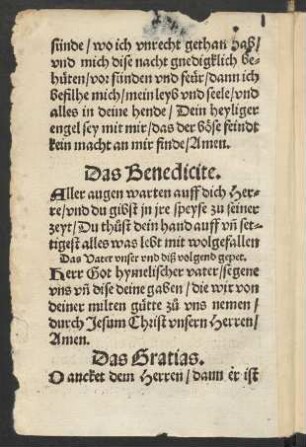 sünde / wo ich vnrecht gethan hab /
vnd mich dise nacht gnedigklich be-
hüten / vor sünden vnd feür / dann ich
befilhe mich / mein leyb vnd seele / vnd
alles in deine hende / Dein heyliger
engel sey mit mir / das der böse feindt
kein macht an mir finde / Amen.
Das Benedicite.
Aller augen warten auff dich Her-
re / vnd du gibst in jre speyse zu seiner
zeyt / Du thůst dein hand auff vñ set-
tigest alles was lebt mit wolgefallen
Das Vater vnser vnd diß volgend gepet.
Herr Got hymelischer vater / segene
vns vñ dise deine gaben / die wir von
deiner milten gütte zů vns nemen /
durch Jesum Christ vnsern Herren /
Amen.
Das Gratias.
Dancket dem Herren / dann er ist